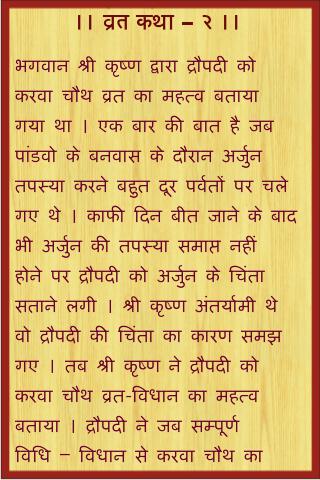 ।। व्रत कथा – २ ।।
भगवान श्री कृष्ण द्वारा द्रौपदी को
करवा चौथ व्रत का महत्व बताया
गया था । एक बार की बात है जब
पांडवो के बनवास के दौरान अर्जुन
तपस्या करने बहुत दूर पर्वतों पर चले
गए थे । काफी दिन बीत जाने के बाद
भी अर्जुन की तपस्या समाप्त नहीं
होने पर द्रौपदी को अर्जुन के चिंता
सताने लगी । श्री कृष्ण अंतर्यामी थे
वो द्रौपदी की चिंता का कारण समझ
गए । तब श्री कृष्ण ने द्रौपदी को
करवा चौथ व्रत-विधान का महत्व
बताया । द्रौपदी ने जब सम्पूर्ण
विधि – विधान से करवा चौथ का